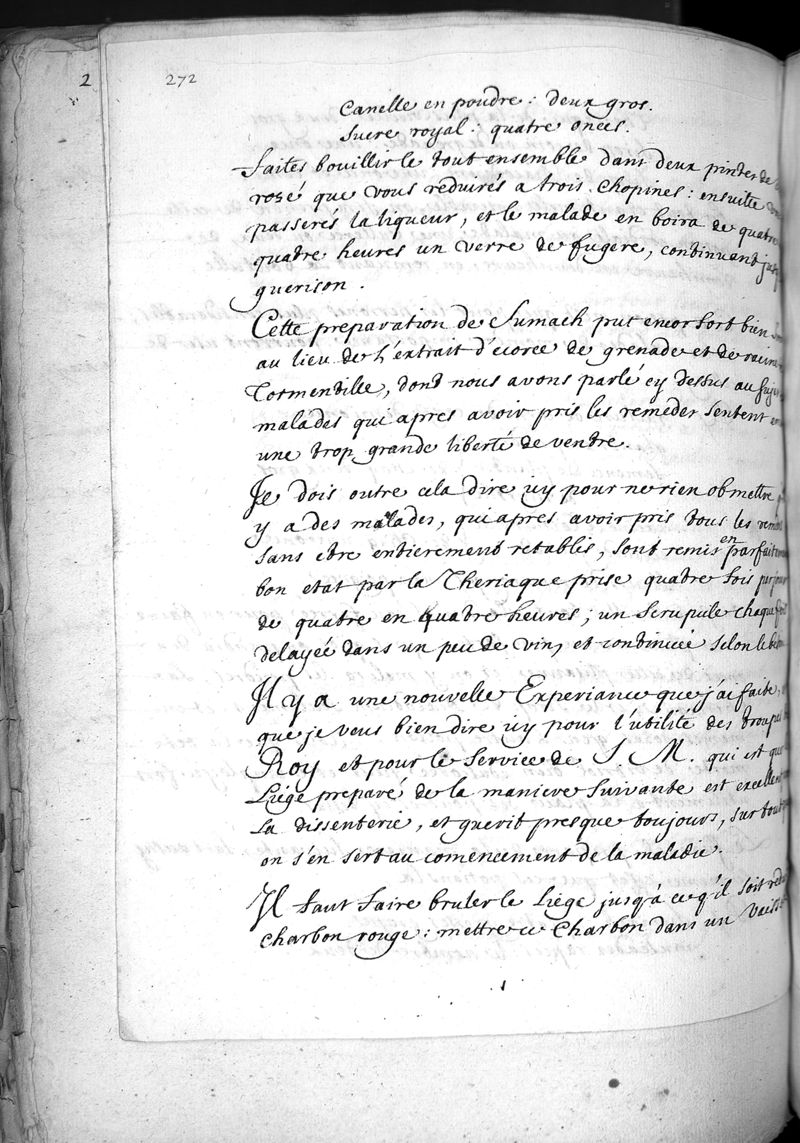 2 272
Canelle en poudre : deux gros.
Sucre royal : quatre onces.
faites bouillir le tout ensemble dans deux pintes de
rosé que vous reduirés a trois chopines : ensuite
passerés la liqueur, et le malade en boira de quatre
quatre heures un verre de fugere, continuant
guerison .
Cette preparation de Sumach put encor fort bien
au lieu de l'extrait d'écorce de grenade et de racine
Tormentille, dont nous avons parlé cy dessus au sujet
malades qui apres avoir pris les remedes sentent
une trop grande liberté de ventre.
Je dois outre cela dire icy pour ne rien obmettre
y a des malades, qui apres avoir pris tous les
sans etre entierement retablis, sont remis en parfaitement
bon etat par la Theriaque prise quatre fois par jour
de quatre en quatre heures ; un scrupule chaque fois
delayée dans un peu de vin, et continuée selon le
Il y a une nouvelle Experiance que j'ai faite,
que je veus bien dire icy pour l'utilité des troupes
Roy et pour le Service de S. M. qui est que
Liége preparé de la maniere suivante est excellent
la dissenterie, et guerit presque toujours, sur tout
on s'en sert au comencement de la maladie.
Il faut faire bruler le Liége jusqu'à ce qu'il soit
charbon rouge : mettre ce Charbon dans un